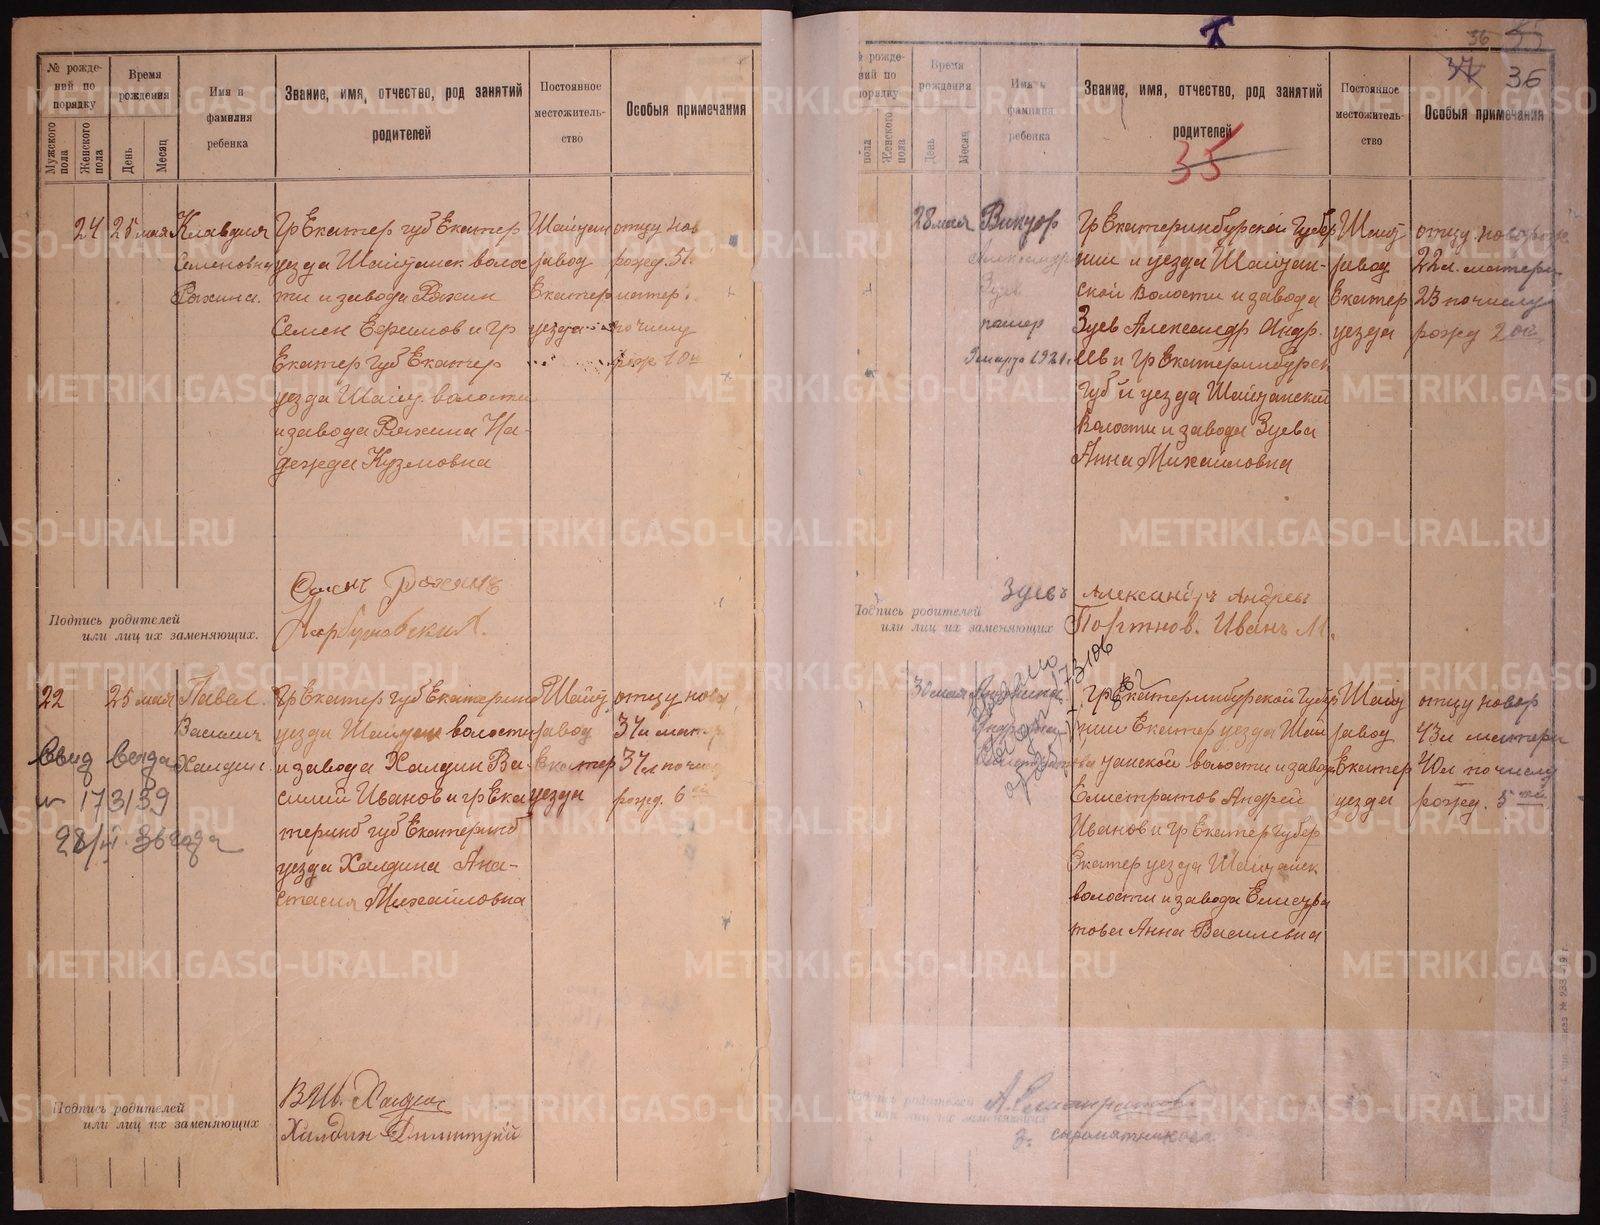 № рожде-
ний по
порядку
Мужского пола
Женского пола
Время рождения
День
Месяц
Имя и фамилия ребенка
Звание, имя, отчество, род занятий родителей
Постоянное местожитель-
ство
Особыя примечания
24 25 мая
Клавдия
Семеновна
Ряхина.
Гр Екатер губ Екатер
уезда Шайтанск волос
ти и завода Ряхин
Семен Ефимов и гр
Екатер губ Екатер
уезда Шайт. волости
и завода Ряхина На-
дежда Кузмовна
Шайтан
завод
Екатер
уезда
отцу нов
рожд.
матер.
по числу
рож 10й
Подпись родителей
или лиц их заменяющих.
22 25 мая
Павел
Василич
Халдин
№ 173139
Гр Екатер губ Екатерин
уезда Шайтан волости
и завода Халдин Ва-
силий Иванов и гр Ека
теринб губ Екатеринб
уезда Халдина Ана-
стасия Михаиловна
Шайт
завод
Екатер
уезда
отцу нов
37л мат
37л по чис
рожд. 6ой
Подпись родителей
или лиц их заменяющих
Халдин Димитрий
36
35
рожде-
ний по
порядку
пола
Женского пола
Время рождения
День
Месяц
Имя и фамилия ребенка
Звание, имя, отчество, род занятий родителей
Постоянное местожитель-
ство
Особыя примечания
28 мая
Виктор
Александр
Зуев
помер
9 марта 1921.
Гр Екатеринбурской Губер
нии и уезда Шайтан-
ской волости и завода
Зуев Александр Андр.
ев и гр Екатеринбурск
губ и уезда Шайтанской
волости и завода Зуева
Анна Михайловна
Шайт
завод
Екатер
уезда
отцу новорож
22л. матери
23 по числу
рожд 2ой
Подпись родителей
или лиц их заменяющих
Зуевъ Александръ Андреевъ
Портнов. Иванъ М.
30 мая
Гр Екатеринбурской Губер
нии Екатер уезда Шай
танской волости и завода
Елистратов Андрей
Иванов и гр Екатер губер
Екатер уезда Шайтанск
волости и завода Елистра
това Анна Василевна
Шайт
завод
Екатер
уезда
отцу новор
43л матери
40л по числу
рожд. 5ый
родителей
или лиц их заменяющих
А. Елистратовъ